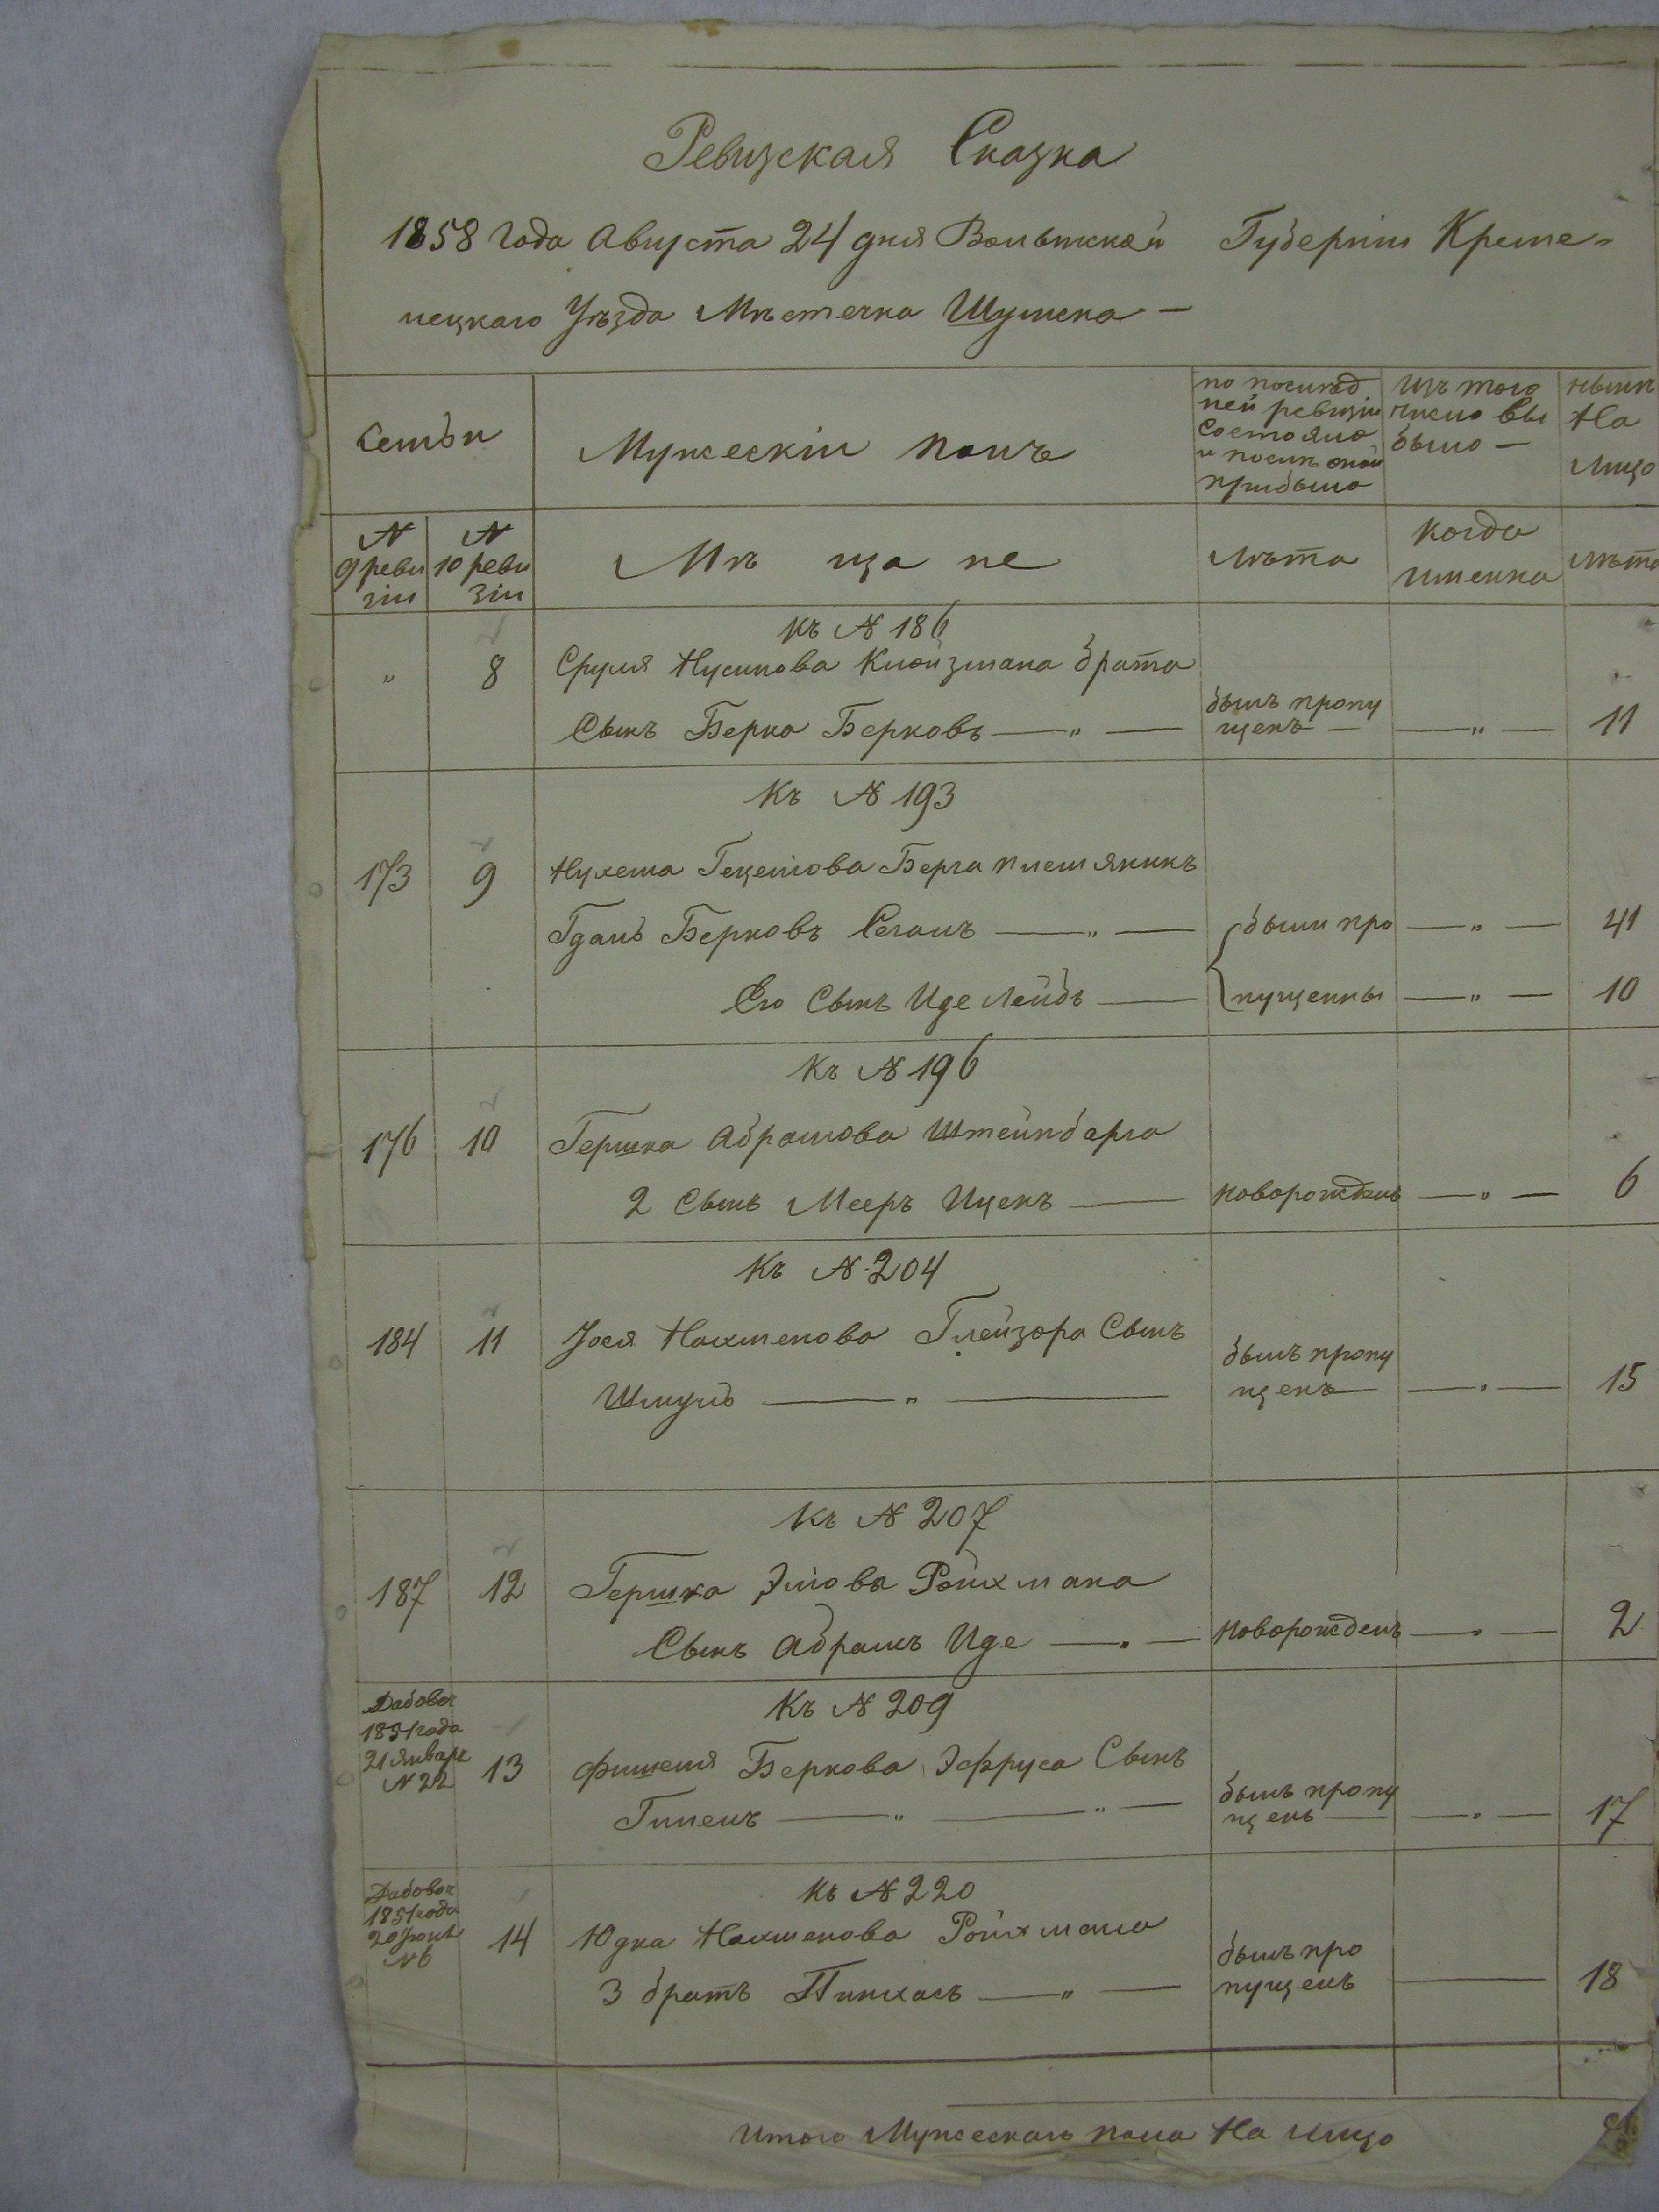 Ревизская Сказка
1858 года Августа 24 дня Волынской Губернiи Креме-
нецкаго Уѣзда Мѣстечка Шумска —
Семьи
Мужескiй полъ
по послѣд
ней ревизiи
состояло
и послѣ оной
прибыло
Изъ того
числа вы
было —
нынѣ
На
лицо
№
9 реви
зiи
№
10 реви
зiи
Мѣ ща не
лѣта
когда
именно
лѣта
къ № 186
" 8 Сруля Нусинова Клойзмана брата
Сынъ Берко Берковъ — " — былъ пропу
щенъ — — " — 11
Къ № 193
173 9 Нухема Гецелiова Берга племянникъ
Гдаль Берковъ Сегалъ — " — были про — " — 41
Его Сынъ Иде Лейбъ — пущенны — " — 10
Къ № 196
176 10 Гершка Абрамова Штейнберга
2 Сынъ Мееръ Ицекъ — новорожденъ — " — 6
Къ № 204
184 11 Іося Нахменова Глейзора Сынъ
Шмуль — " — былъ пропу
щенъ — — " — 15
Къ № 207
187 12 Гершка Элiова Ройхмана
Сынъ Абрамъ Иде — " — новорожденъ — " — 2
Къ № 209
Добавоч
1851 года
21 Января
№ 22
13 Фишеля Беркова Эфруса Сынъ
Гилелъ — " — " — былъ пропу
щенъ — — " — 17
Къ № 220
Добавоч
1851 года
20 Iюня
№ 6
14 Юдка Нахменова Ройхмана
3 братъ Пинхасъ — " — былъ про
пущенъ — 18
Итого Мужескаго пола На лицо